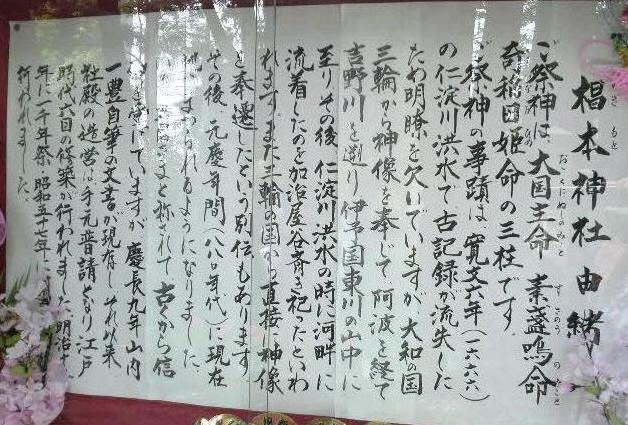 椙本神社由緒
ご祭神は、大国主命 素盞嗚命
奇稲田姫命の三柱です。
ご祭神の事蹟は、寛文六年(一六六六)
の仁淀川洪水で古記録が流失した
ため明瞭を欠いていますが、大和の国
三輪から神像を奉じて阿波を経て
吉野川を遡り伊予国東川の山中に
至りその後仁淀川洪水の時に河畔に
流着したのを加治屋谷斉き祀ったといわ
れます。また三輪の国から直接に神像
を奉遷したという別伝もあります。
その後元慶年間(八八〇年代)に現在
まつられるようになりました。
さまと称されて古くから信
ていますが慶長九年山内
一豊自筆の文書が現存し、それ以来
社殿の造営は手元普請となり江戸
時代六回の修築が行われました。明治
年に一千年祭、昭和五十七年に
行われました。